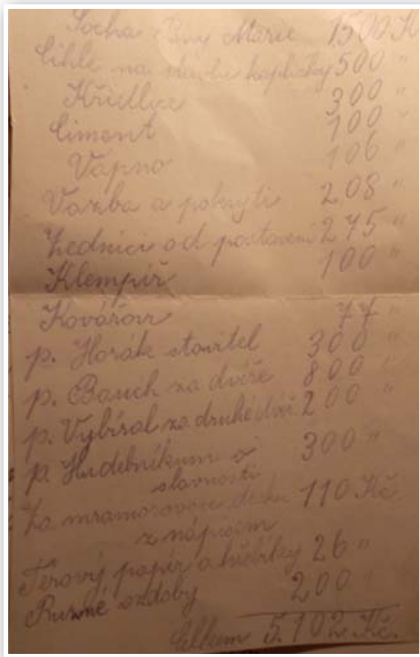 Socha Pany Marie 1500 Kč
Cihle na stavbu kapličky 500 "
Křidlice 300 "
Ciment 100 "
Vápno 106 "
Vazba a pokrytí 208 "
Zedníci od postavení 275 "
Klempíř 100 "
Kovářovi 77 "
p. Horák stavitel 300 "
p. Bauch za dvéře 800 "
p. Vybíral za druhé dvéř 200 "
p. Hudebníkum o 300 "
slavnosti
Za mramorovou desku 110 Kč
z nápisem
Térový papír a hřebíky 26 "
Ruzné ozdoby 200 "
Celkem 5.102 Kč.